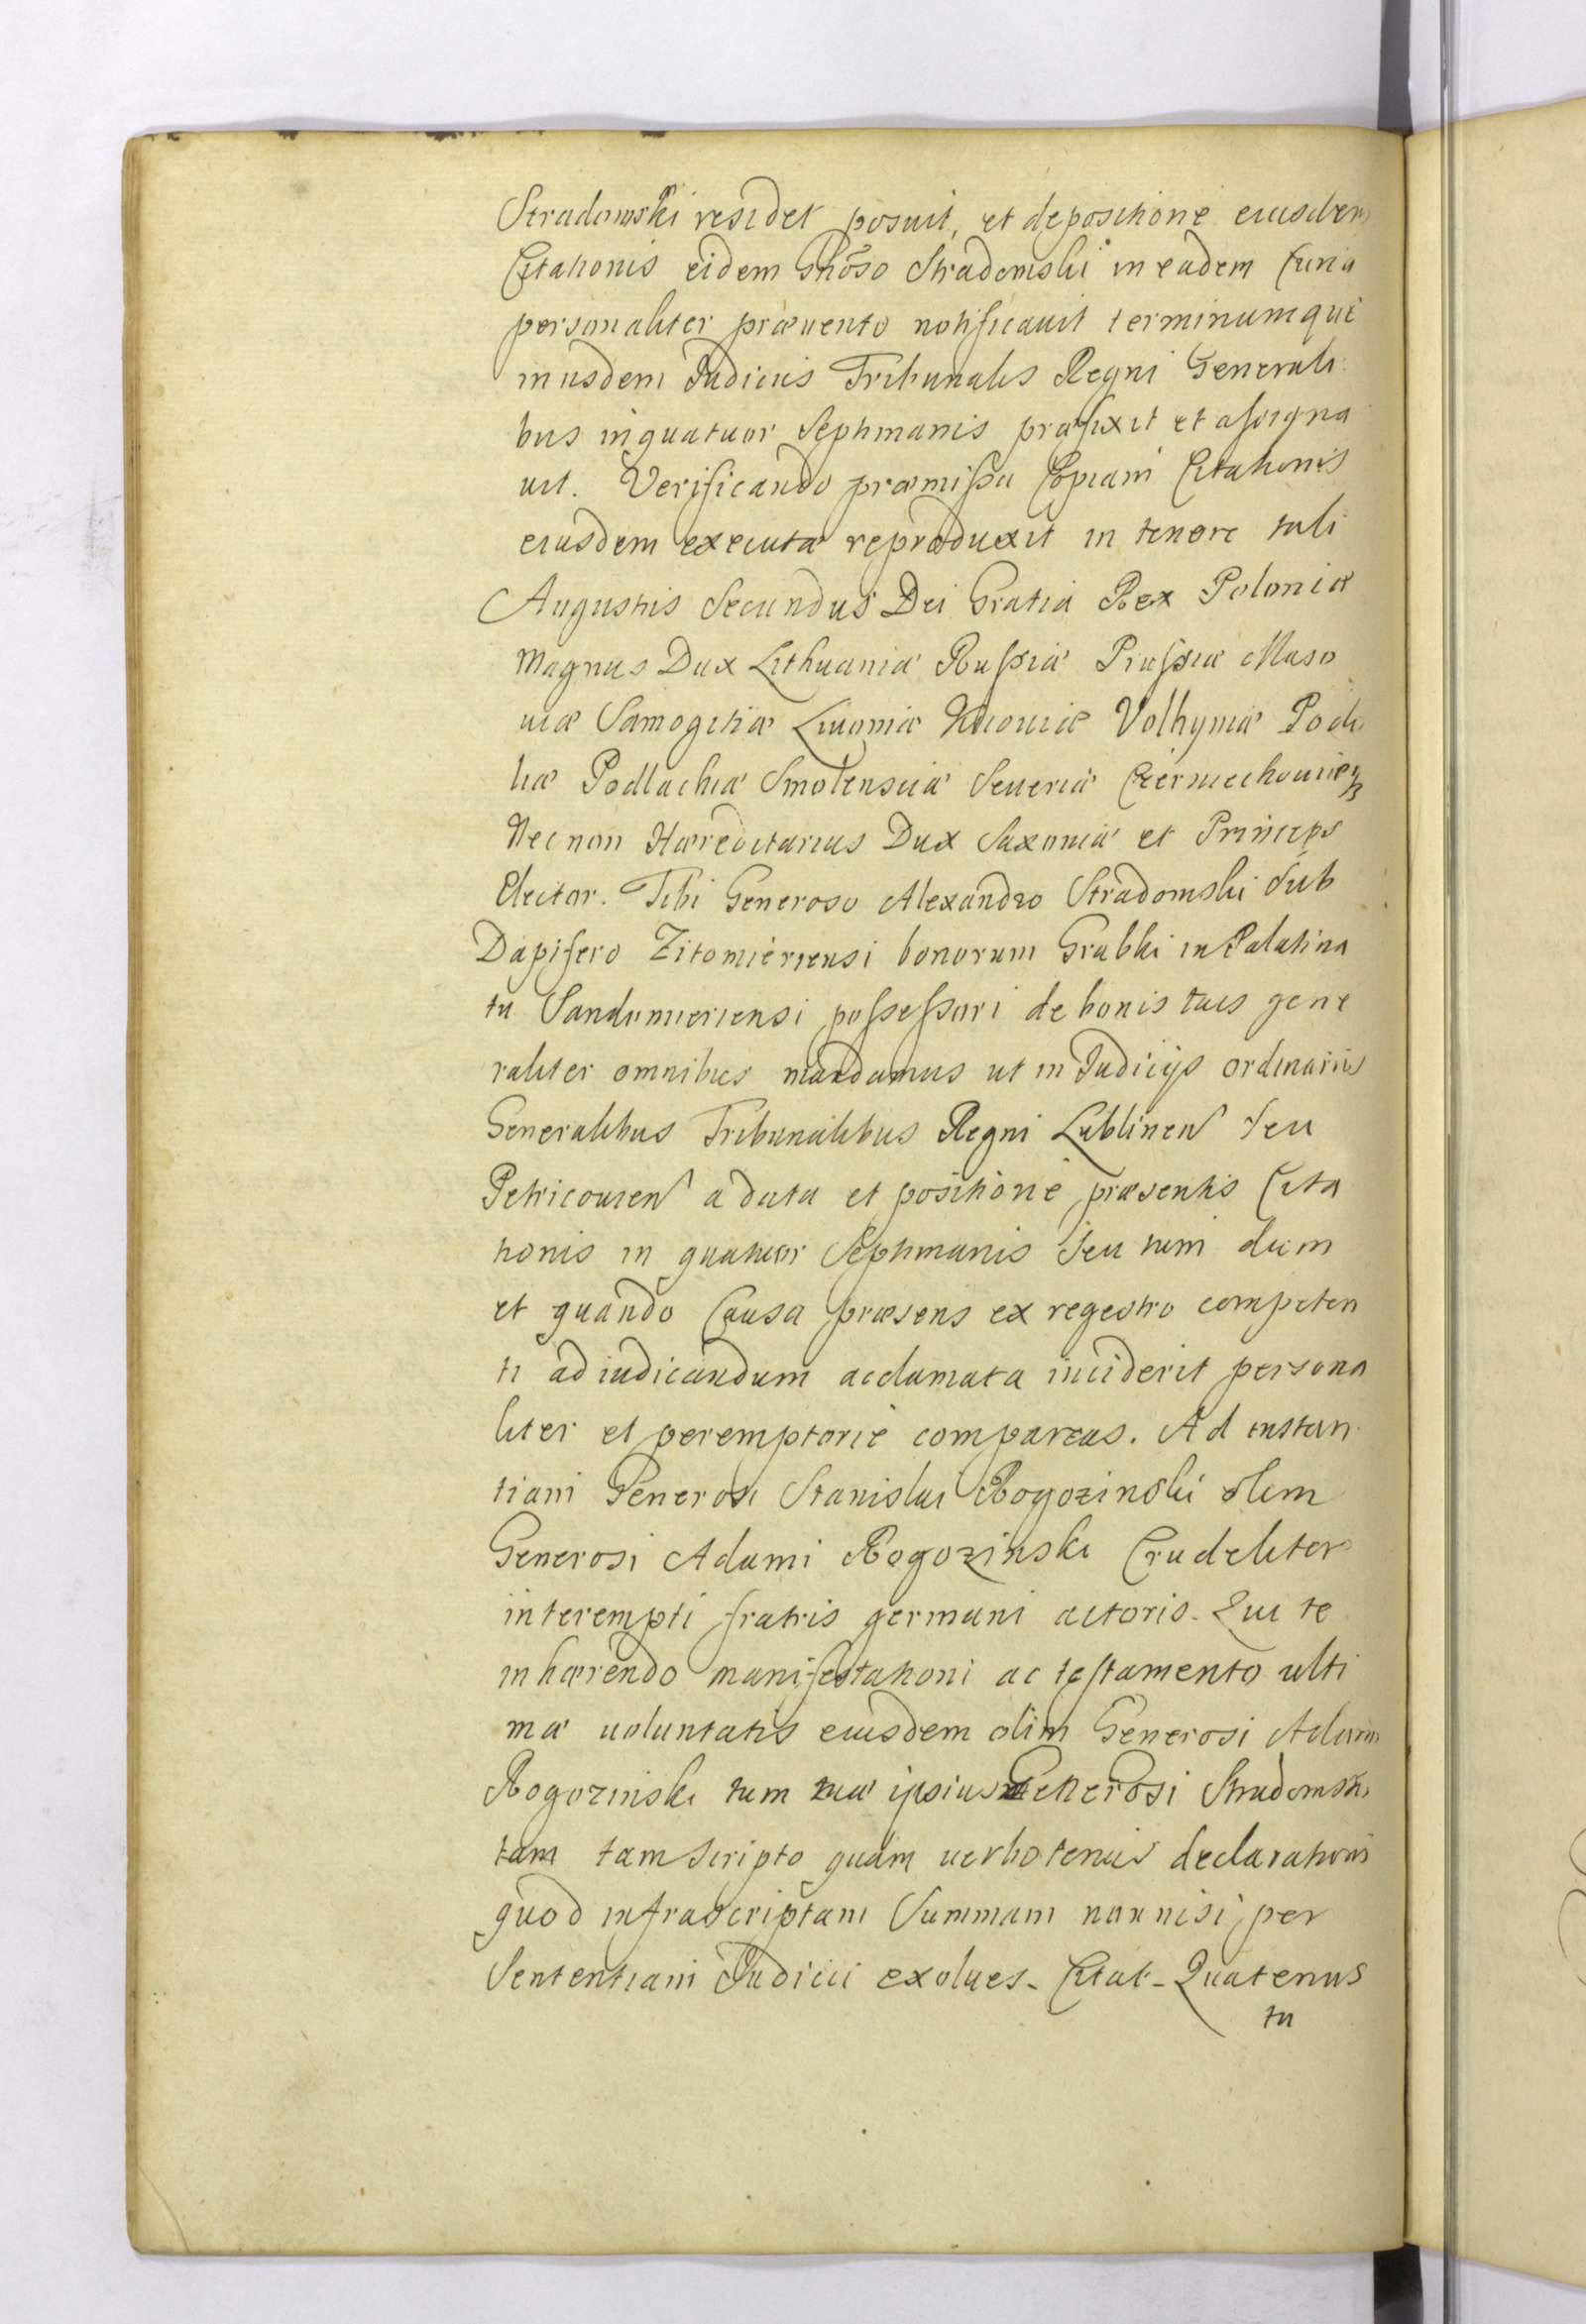 Stradomski residet posuit, et depositione eiusdem
Citationis eidem Gnõso Stradomski in eadem Curia
personaliter præuento notificauit terminumque
in iisdem Iudicijs Tribunalis Regni Generali
bus in quatuor Septimanis præfixit et assigna
uit. Verificando præmissa Copiam Citationis
eiusdem executæ reproduxit in tenore tali
Augustus Secundus Dei Gratia Rex Poloniæ
Magnus Dux Lithuaniæ Russiæ Prussiæ Maso
uiæ Samogitiæ Liuoniæ Kiiouiæ Volhyniæ Podo
liæ Podlachiæ Smolensciæ Seueriæ Czerniechouięq3
Nec non Hæreditarius Dux Saxoniæ et Princeps
Elector. Tibi Generoso Alexandro Stradomski Sub
Dapifero Zitomieriensi bonorum Grabki in Palatina
tu Sandomieriensi possessori de bonis tuis gene
raliter omnibus mandamus ut in Iudicijs ordinarijs
Generalibus Tribunalibus Regni Lublinen seu
Petricouien a data et positione præsentis Cita
tionis in quatuor Septimanis seu tum dum
et quando Causa præsens ex regestro competen
ti ad iudicandum acclamata inciderit persona
liter et peremptorie compareas. Ad instan
tiam Generosi Stanislai Rogozinski olim
Generosi Adami Rogozinski Crudeliter
interempti fratris germani actoris. Qui te
inhærendo manifestationi ac testamento ulti
mæ uoluntatis eiusdem olim Generosi Adami
Rogozinski tum tuæ ipsius Generosi Stradomski
tam tam scripto quam uerbotenus declarationi
quod infrascriptam Summam non nisi per
Sententiam Iudicii exolues. Citat. Quatenus
tu